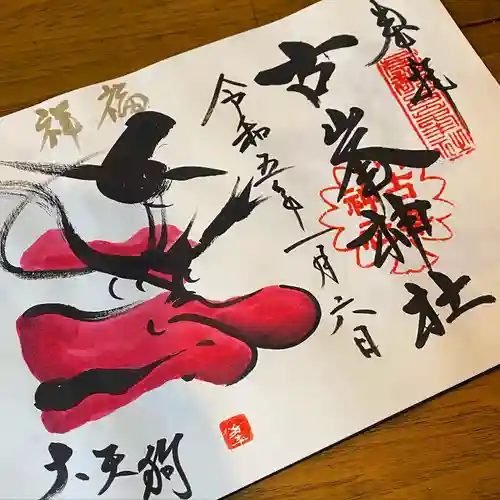 奉拝
古峯神社
令和五年一月六日
祥福
大天狗